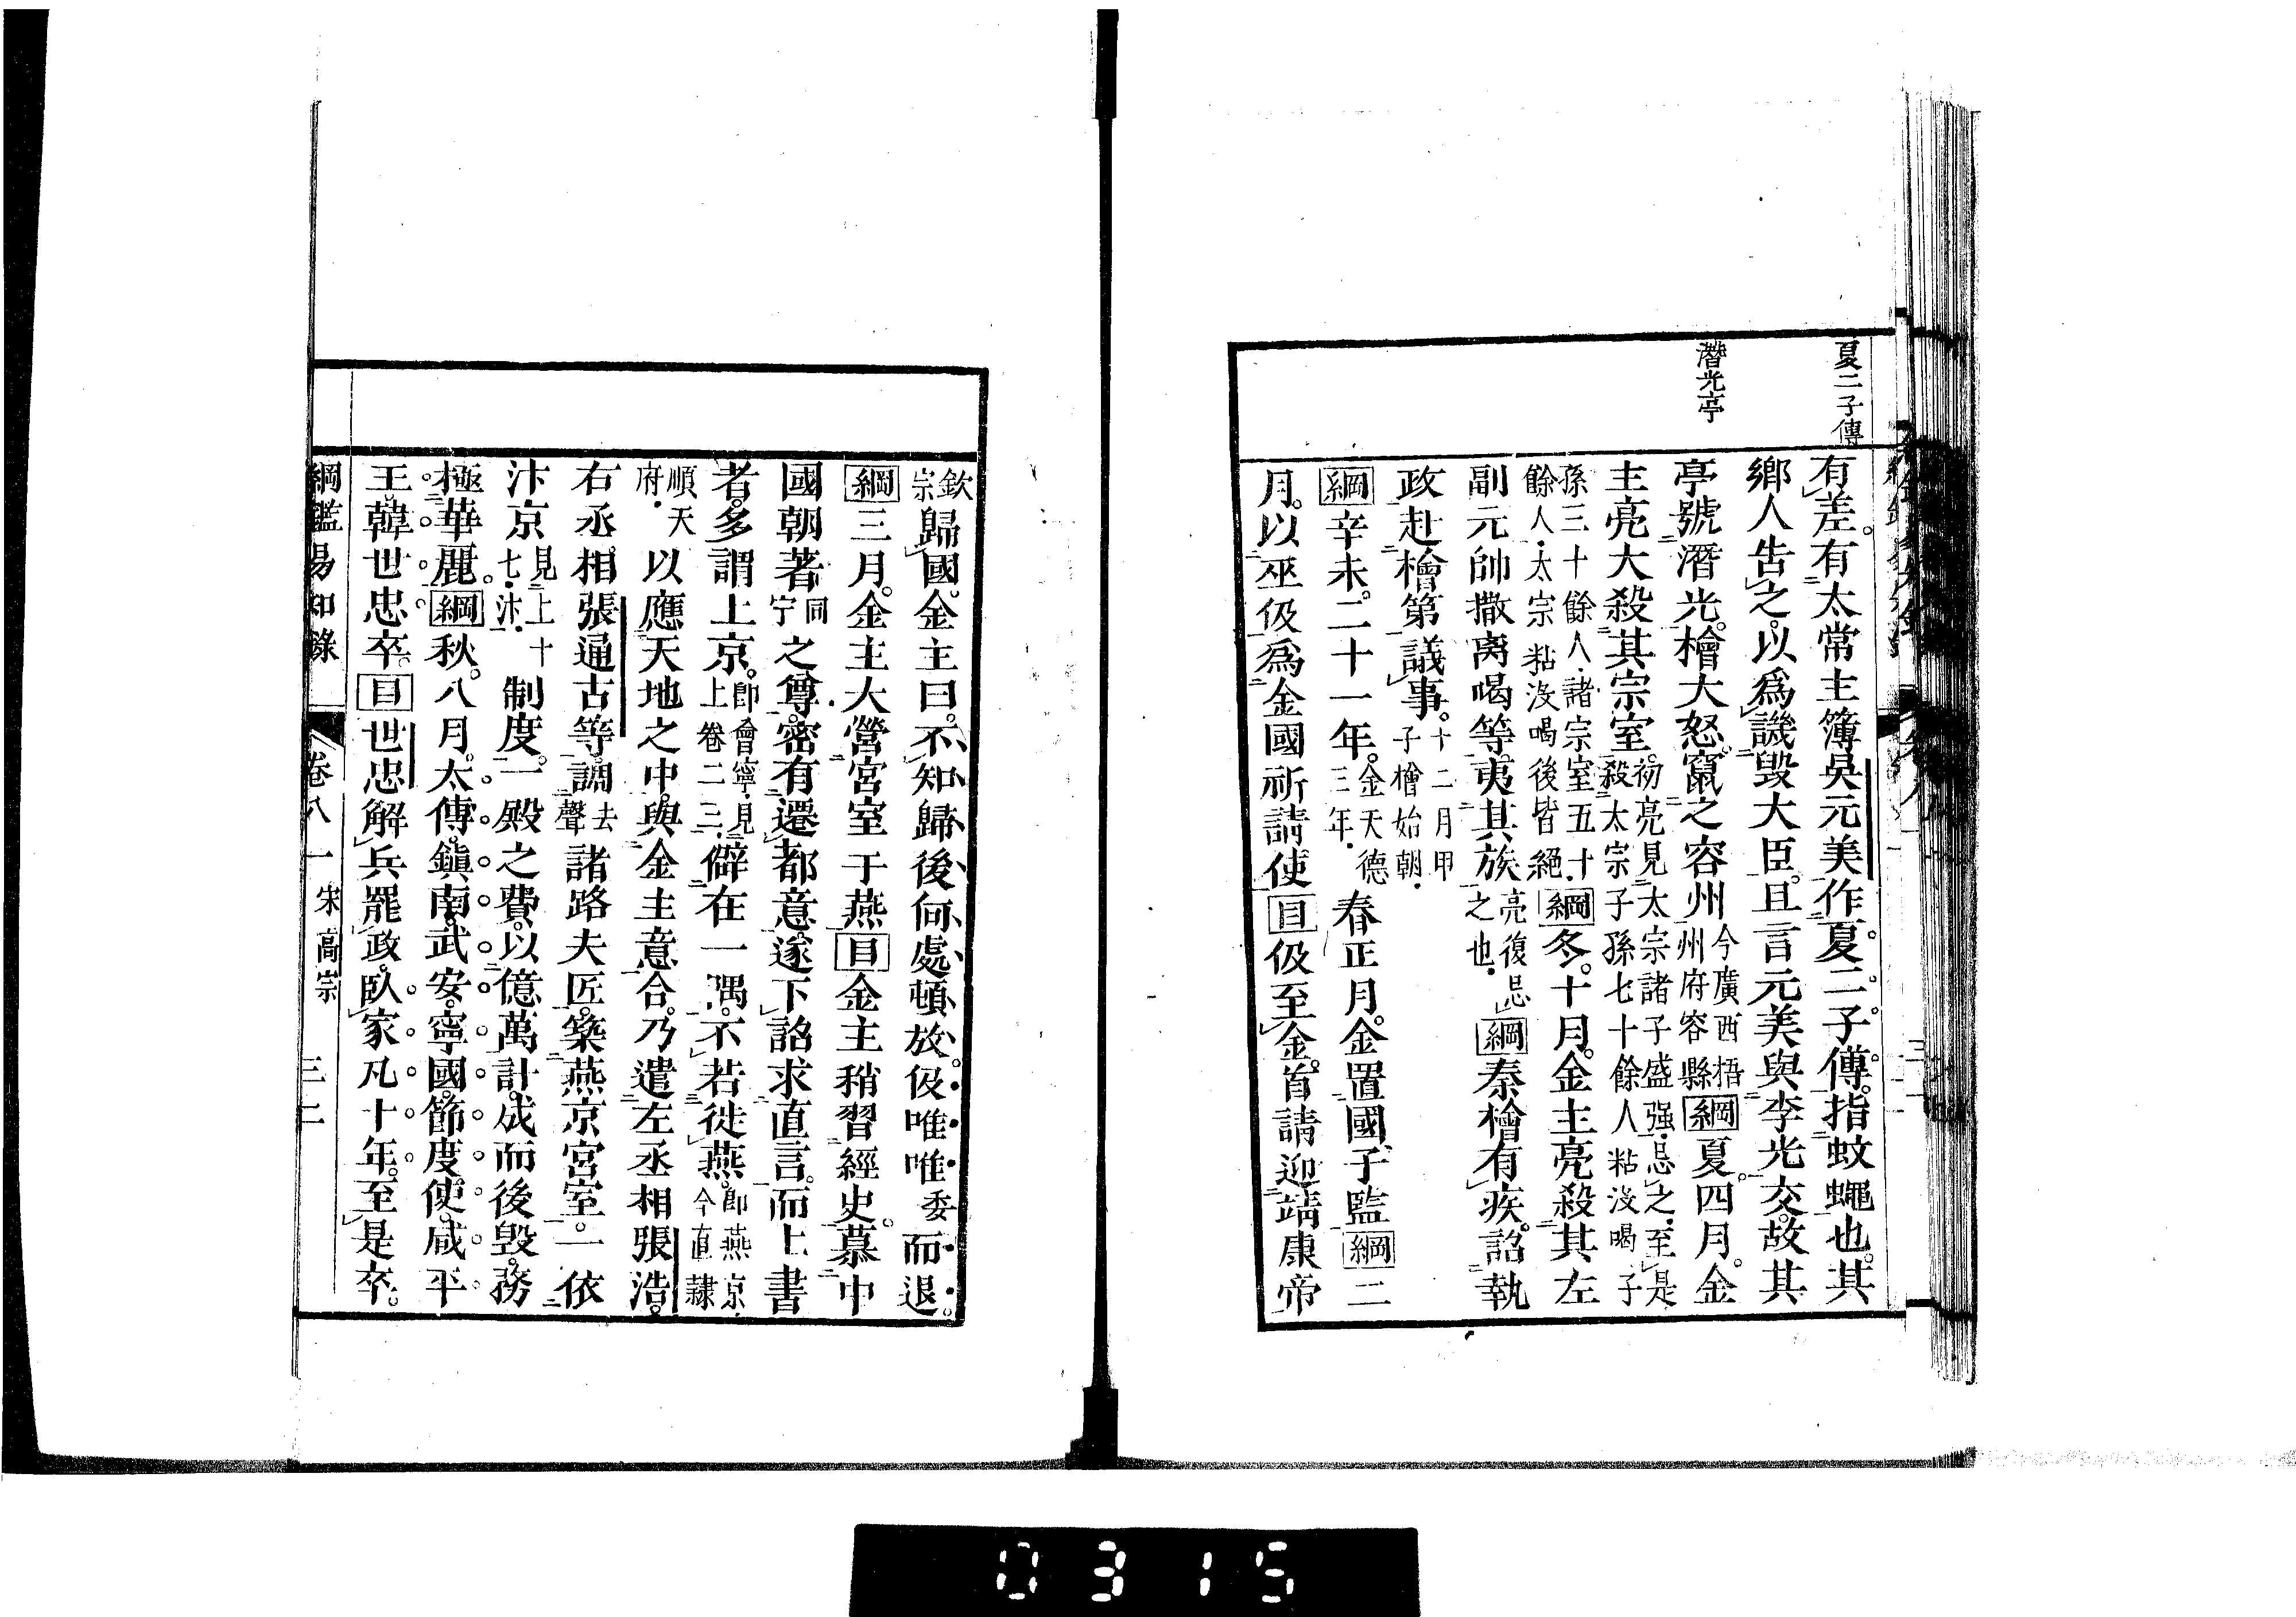 夏二子傳
潛光亭
有差。有太常主簿吳元美作夏二子傳。指蚊蠅也。其
鄉人告之。以爲譏毀大臣。且言元美與李光交。故其
亭號潛光。檜大怒。竄之容州今廣西梧州府容縣綱夏。四月。金
主亮大殺其宗室。初亮見太宗諸子盛强。忌之。至是殺太宗子孫七十餘人粘沒喝子
孫三十餘人諸宗室五十餘人太宗粘沒喝後皆絕綱冬。十月。金主亮殺其左
副元帥撒离喝等。夷其族亮復忌之也綱秦檜有疾。詔執
政赴檜第議事。十二月甲子檜始朝
綱辛未。二十一年。金天德三年春正月。金置國子監綱二
月。以巫伋爲金國祈請使目伋至金。首請迎靖康帝
欽宗歸國。金主曰。不知歸後何處頓放。伋唯唯委而退。
綱三月。金主大營宮室于燕目金主稍習經史。慕中
國朝著同宁之尊。密有遷都意。遂下詔求直言。而上書
者。多謂上京。卽會寧見上卷二三僻在一隅。不若徙燕。卽燕京今直隸
順天府以應天地之中。與金主意合。乃遣左丞相張浩。
右丞相張通古等。調去聲諸路夫匠。築燕京宮室。一依
汴京見上十七汴制度。一殿之費。以億萬計。成而後毀。務
極華麗。綱秋。八月。太傅。鎭南。武安。寧國。節度使。咸平
王。韓世忠卒。目世忠解兵罷政。臥家凡十年。至是卒。
綱鑑易知錄 卷八一 宋高宗 三二
0315